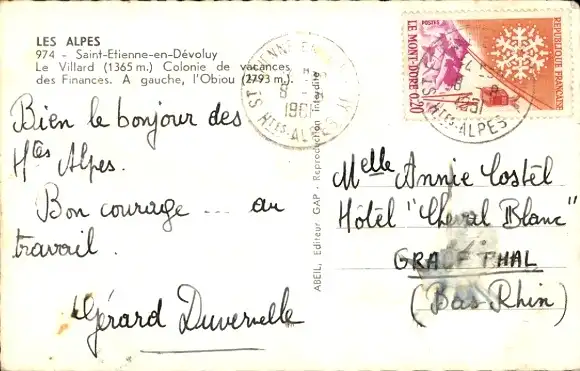 LES ALPES
974 - Saint-Etienne-en-Dévoluy
Le Villard (1365 m.) Colonie de vacances
des Finances. A gauche, l'Obiou (2793 m.).
Bien le bonjour des
Htes Alpes.
Bon courage ... au
travail.
Gérard Duvernelle
ABEIL, Editeur GAP - Reproduction interdite
POSTES
LE MONT-DORE 0,20
REPUBLIQUE FRANÇAISE
1961
HTES-ALPES
HTES-ALPES
Melle Annie Costel
Hôtel "Cheval Blanc"
GRAUFTHAL
(Bas Rhin)